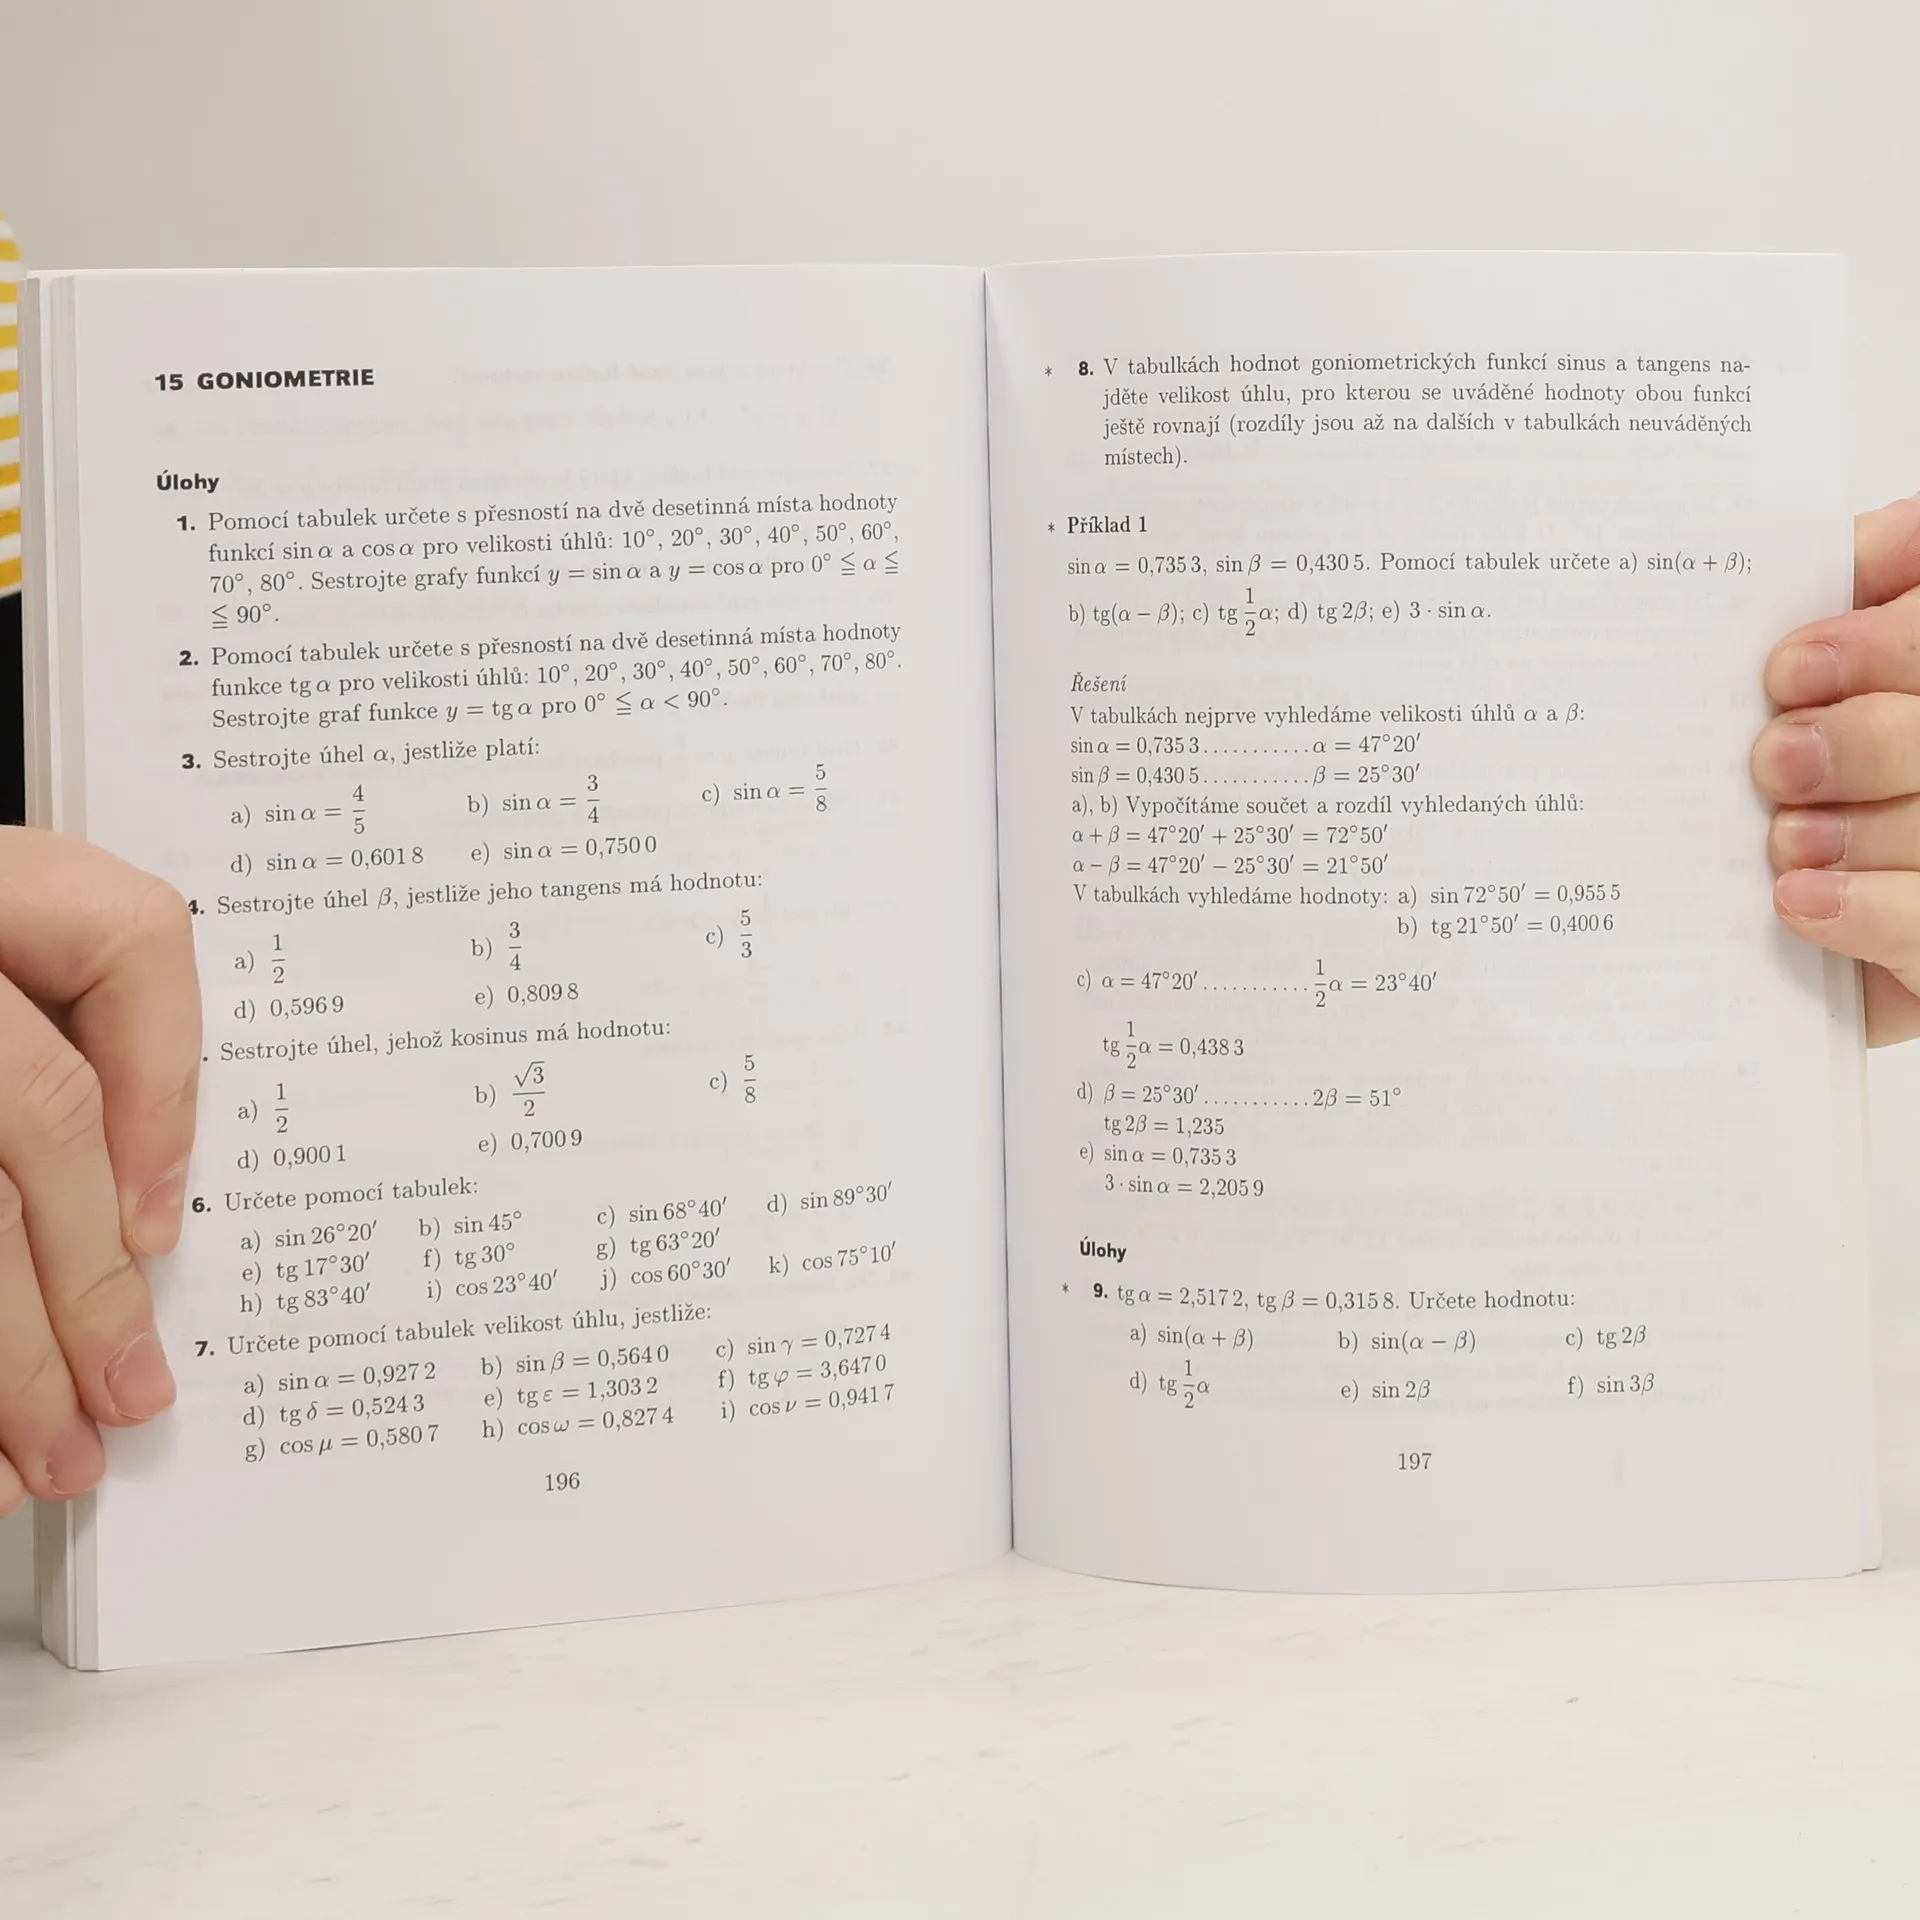 15 GONIOMETRIE
Úlohy
1. Pomocí tabulek určete s přesností na dvě desetinná místa hodnoty
funkcí sin α a cos α pro velikosti úhlů: 10°, 20°, 30°, 40°, 50°, 60°,
70°, 80°. Sestrojte grafy funkcí y = sin α a y = cos α pro 0° ≦ α ≦
≦ 90°.
2. Pomocí tabulek určete s přesností na dvě desetinná místa hodnoty
funkce tg α pro velikosti úhlů: 10°, 20°, 30°, 40°, 50°, 60°, 70°, 80°.
Sestrojte graf funkce y = tg α pro 0° ≦ α < 90°.
3. Sestrojte úhel α, jestliže platí:
a) sin α = 4/5 b) sin α = 3/4 c) sin α = 5/8
d) sin α = 0,601 8 e) sin α = 0,750 0
4. Sestrojte úhel β, jestliže jeho tangens má hodnotu:
a) 1/2 b) 3/4 c) 5/3
d) 0,596 9 e) 0,809 8
. Sestrojte úhel, jehož kosinus má hodnotu:
a) 1/2 b) √3/2 c) 5/8
d) 0,900 1 e) 0,700 9
6. Určete pomocí tabulek:
a) sin 26°20′ b) sin 45° c) sin 68°40′ d) sin 89°30′
e) tg 17°30′ f) tg 30° g) tg 63°20′
h) tg 83°40′ i) cos 23°40′ j) cos 60°30′ k) cos 75°10′
7. Určete pomocí tabulek velikost úhlu, jestliže:
a) sin α = 0,927 2 b) sin β = 0,564 0 c) sin γ = 0,727 4
d) tg δ = 0,524 3 e) tg ε = 1,303 2 f) tg φ = 3,647 0
g) cos μ = 0,580 7 h) cos ω = 0,827 4 i) cos ν = 0,941 7
196
* 8. V tabulkách hodnot goniometrických funkcí sinus a tangens na-
jděte velikost úhlu, pro kterou se uváděné hodnoty obou funkcí
ještě rovnají (rozdíly jsou až na dalších v tabulkách neuváděných
místech).
* Příklad 1
sin α = 0,735 3, sin β = 0,430 5. Pomocí tabulek určete a) sin(α + β);
b) tg(α − β); c) tg 1/2 α; d) tg 2β; e) 3 · sin α.
Řešení
V tabulkách nejprve vyhledáme velikosti úhlů α a β:
sin α = 0,735 3...........α = 47°20′
sin β = 0,430 5...........β = 25°30′
a), b) Vypočítáme součet a rozdíl vyhledaných úhlů:
α + β = 47°20′ + 25°30′ = 72°50′
α − β = 47°20′ − 25°30′ = 21°50′
V tabulkách vyhledáme hodnoty: a) sin 72°50′ = 0,955 5
b) tg 21°50′ = 0,400 6
c) α = 47°20′...........1/2 α = 23°40′
tg 1/2 α = 0,438 3
d) β = 25°30′...........2β = 51°
tg 2β = 1,235
e) sin α = 0,735 3
3 · sin α = 2,205 9
Úlohy
* 9. tg α = 2,517 2, tg β = 0,315 8. Určete hodnotu:
a) sin(α + β) b) sin(α − β) c) tg 2β
d) tg 1/2 α e) sin 2β f) sin 3β
197